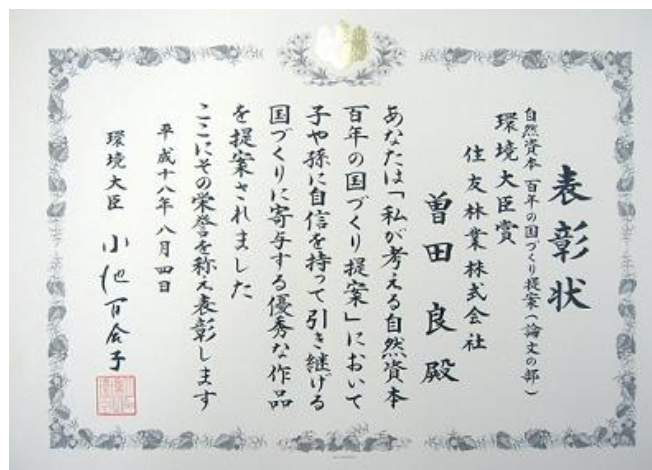 表彰状
自然資本百年の国づくり提案(論文の部)
環境大臣賞
住友林業株式会社
曽田良殿
あなたは「私が考える自然資本
百年の国づくり提案」において
子や孫に自信を持って引き継げる
国づくりに寄与する優秀な作品
を提案されました
ここにその栄誉を称え表彰します
平成十八年八月四日
環境大臣 小池百合子